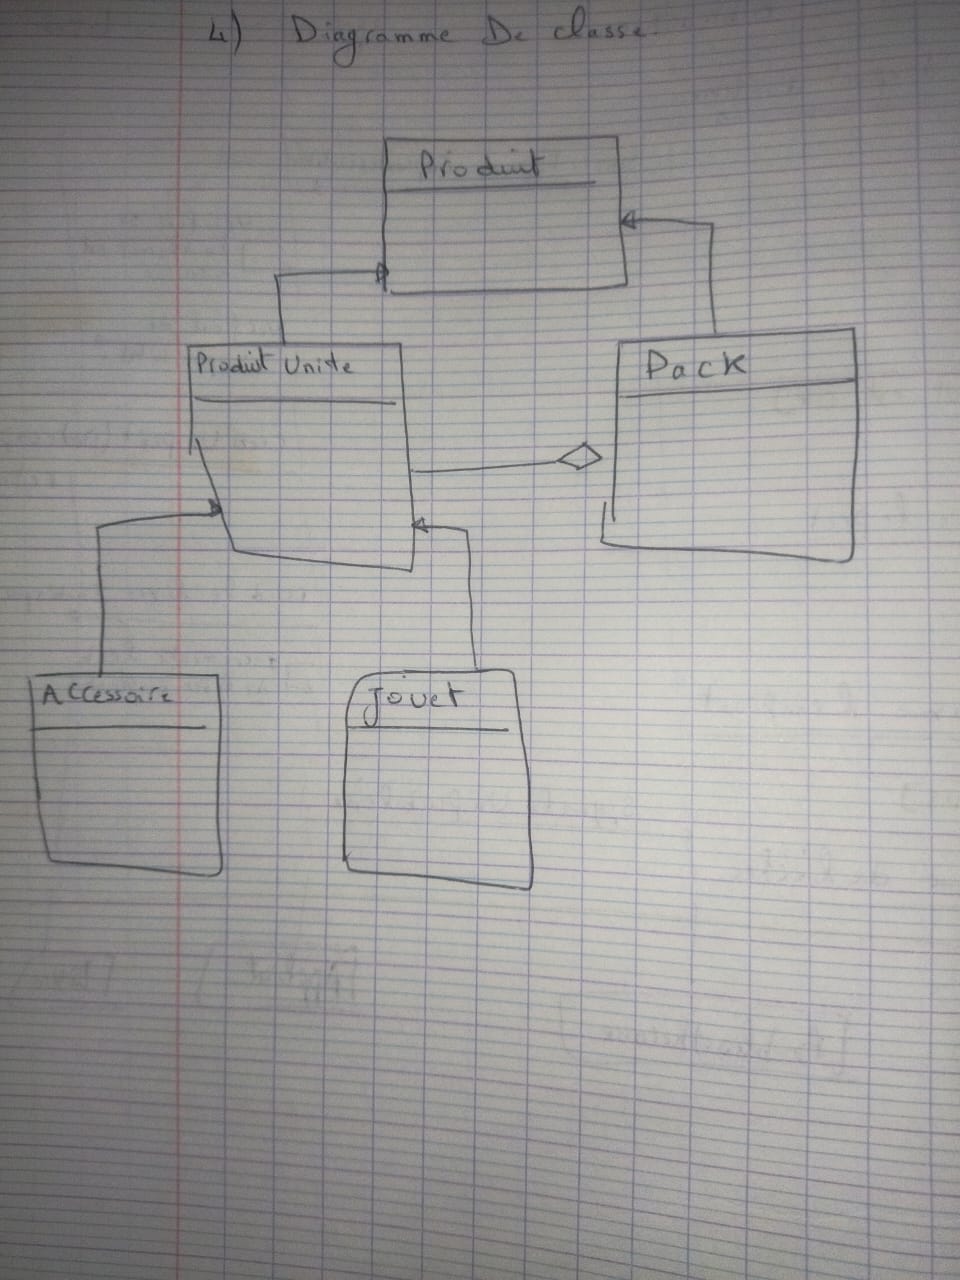 4) Diagramme De classe.
Produit
Produit Unite
Pack
Accessoire
Jouet